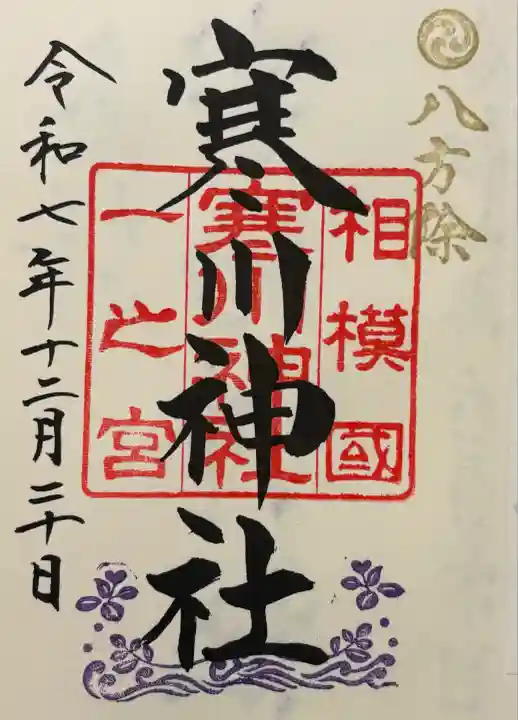 八方除
相模國
寒川神社
一之宮
寒川神社
令和七年十二月二十日